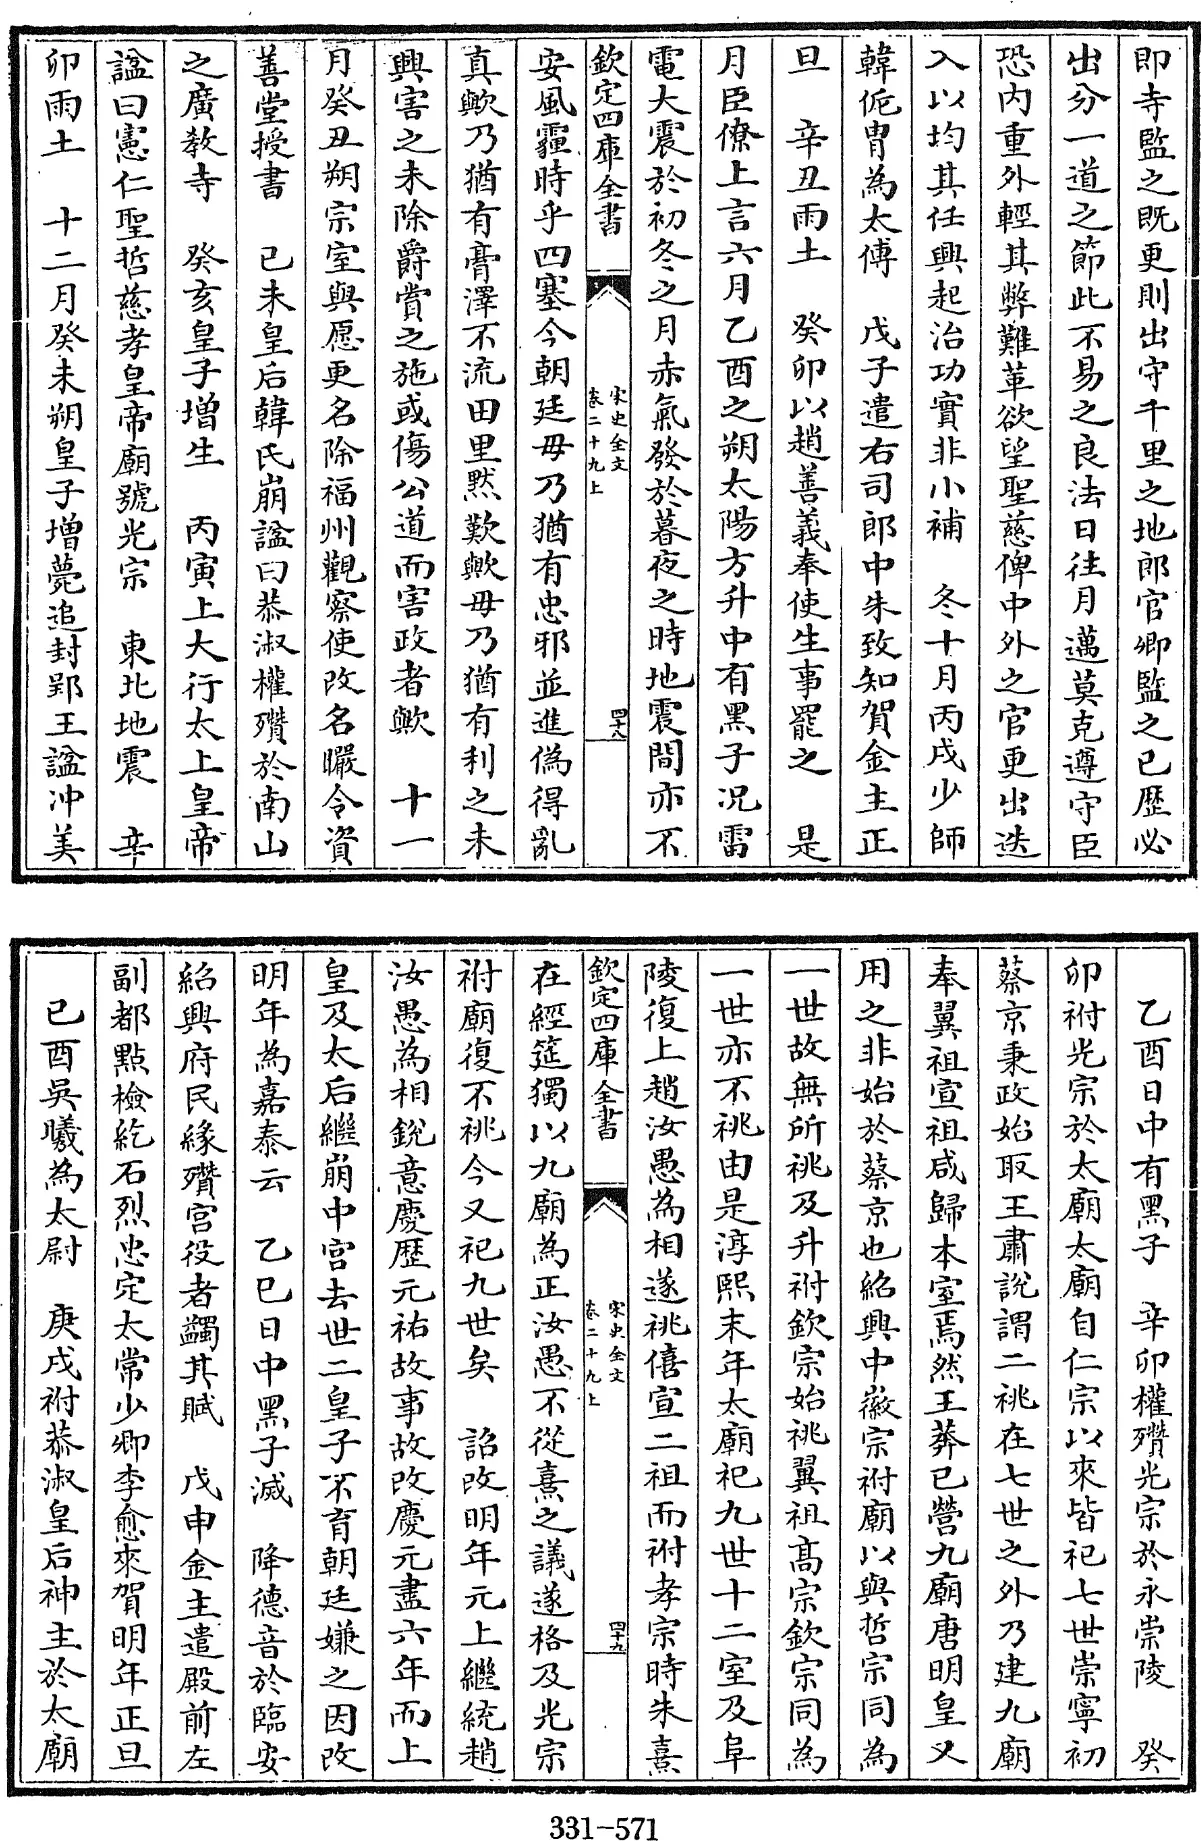 即寺監之既更則出守千里之地郎官卿監之已歴必
出分一道之節此不易之良法日往月邁莫克遵守臣
恐内重外輕其弊難革欲望聖慈俾中外之官更出迭
入以均其任興起治功實非小補　冬十月丙戌少師
韓侂胄為太傅　戊子遣右司郎中朱致知賀金主正
旦　辛丑雨土　癸卯以趙善義奉使生事罷之　是
月臣僚上言六月乙酉之朔太陽方升中有黑子况雷
電大震於初冬之月赤氣發於暮夜之時地震間亦不
欽定四庫全書
宋史全文
卷二十九上
四十八
安風霾時乎四塞今朝廷毋乃猶有忠邪並進偽得亂
真歟乃猶有膏澤不流田里黙歎歟毋乃猶有利之未
興害之未除爵賞之施或傷公道而害政者歟　十一
月癸丑朔宗室與愿更名除福州觀察使改名曮令資
善堂授書　己未皇后韓氏崩諡曰恭淑權殯於南山
之廣教寺　癸亥皇子增生　丙寅上大行太上皇帝
諡曰憲仁聖哲慈孝皇帝廟號光宗　東北地震　辛
卯雨土　十二月癸未朔皇子增薨追封郢王諡冲美
乙酉日中有黑子　辛卯權殯光宗於永崇陵　癸
卯祔光宗於太廟太廟自仁宗以來皆祀七世崇寧初
蔡京秉政始取王肅說謂二祧在七世之外乃建九廟
奉翼祖宣祖咸歸本室焉然王莽已營九廟唐明皇又
用之非始於蔡京也紹興中徽宗祔廟以與哲宗同為
一世故無所祧及升祔欽宗始祧翼祖髙宗欽宗同為
一世亦不祧由是淳熙末年太廟祀九世十二室及阜
陵復上趙汝愚為相遂祧僖宣二祖而祔孝宗時朱熹
欽定四庫全書
宋史全文
卷二十九上
四十九
在經筵獨以九廟為正汝愚不從熹之議遂格及光宗
祔廟復不祧今又祀九世矣　詔改明年元上繼統趙
汝愚為相銳意慶歴元祐故事故改慶元盡六年而上
皇及太后繼崩中宮去世二皇子不育朝廷嫌之因改
明年為嘉泰云　乙巳日中黑子滅　降德音於臨安
紹興府民緣殯宫役者蠲其賦　戊申金主遣殿前左
副都點檢紇石烈忠定太常少卿李愈來賀明年正旦
己酉吳曦為太尉　庚戌祔恭淑皇后神主於太廟
331-571